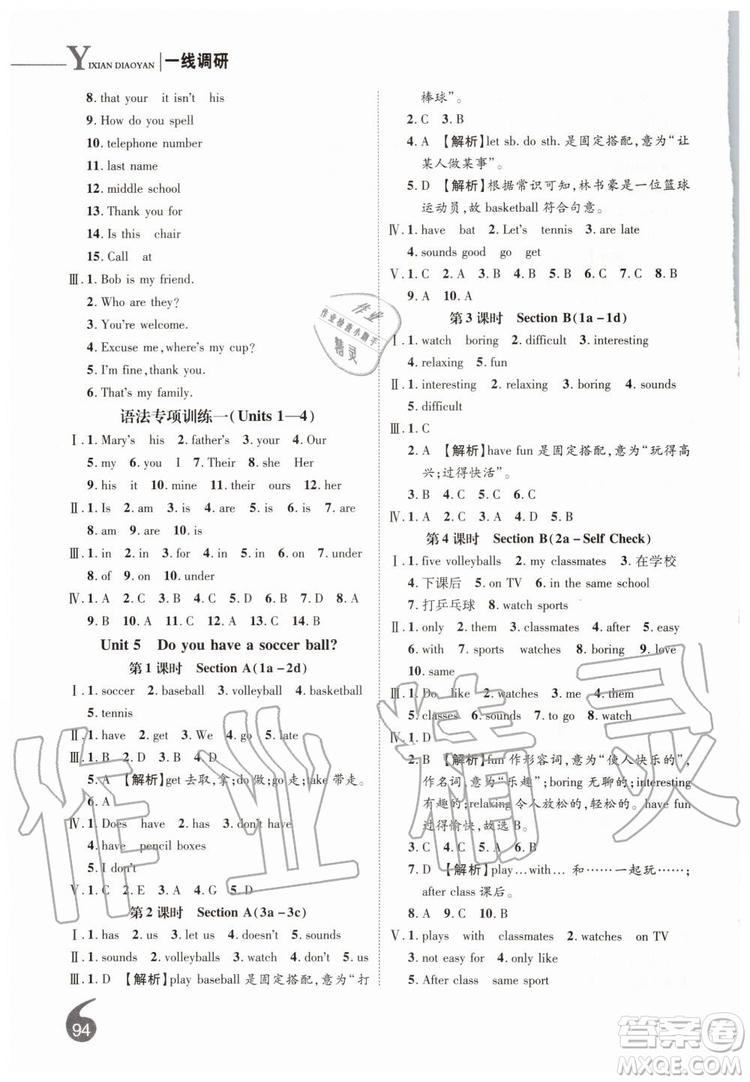 YIXIAN DIAOYAN 一线调研
8. that your it isn't his
9. How do you spell
10. telephone number
11. last name
12. middle school
13. Thank you for
14. Is this chair
15. Call at
Ⅲ. 1. Bob is my friend.
2. Do you have any photos?
3. You're welcome.
4. Excuse me, where's my cup?
5. I'm fine, thank you.
6. That's my family.
语法专项训练一(Units 1—4)
Ⅰ. 1. Mary's his 2. father's 3. your 4. Our
5. my 6. your 7. his 8. she Her
9. his it 10. mine Their 11. ours 12. her
Ⅱ. 1. is 2. am 3. are 4. are 5. is 6. is
7. are 8. is are 9. is 10. is
Ⅲ. 1. in 2. in 3. at 4. in 5. on 6. at 7. under
8. of 9. on 10. under
Ⅳ. 1. A 2. C 3. C 4. C 5. A 6. D 7. D 8. A
9. B 10. B 11. A 12. B
Unit 5 Do you have a soccer ball?
第 1 课时 Section A(1a-2d)
Ⅰ. 1. soccer 2. baseball 3. volleyball 4. basketball
5. tennis
Ⅱ. 1. have 2. get 3. We 4. go 5. late
Ⅲ. 1. B 2. D 3. C 4. B
5. A 【解析】get 去取,拿;do 做;go 走;take 带走。
6. A
Ⅳ. 1. Does have 2. has 3. don't have
4. have pencil boxes
5. I don't
Ⅴ. 1. C 2. D 3. E 4. A 5. B
第 2 课时 Section A(3a-3c)
Ⅰ. 1. has 2. us 3. let 4. doesn't 5. sounds
Ⅱ. 1. has 2. goes 3. sounds 4. don't 5. us
Ⅲ. 1. D 【解析】play baseball 是固定搭配,意为“打
棒球”。
2. C 3. B
4. A 【解析】let sb. do sth. 是固定搭配,意为“让
某人做某事”。
5. D 【解析】根据常识可知,林书豪是一位篮球
运动员,故 basketball 符合句意。
Ⅳ. 1. have bat 2. Let's tennis 3. are late
4. sounds good go get
Ⅴ. 1. C 2. C 3. B 4. D 5. A 6. B 7. C 8. C
9. A 10. A
第 3 课时 Section B(1a-1d)
Ⅰ. 1. watch 2. boring 3. difficult
4. relaxing 5. fun
Ⅱ. 1. interesting 2. relaxing 3. boring 4. sounds
5. difficult
Ⅲ. 1. C
2. A 【解析】have fun 是固定搭配,意为“玩得高
兴;过得快活”。
3. B 4. C 5. C 6. D
Ⅳ. 1. B 2. A 3. C 4. A 5. B
第 4 课时 Section B(2a-Self Check)
Ⅰ. 1. five volleyballs 2. my classmates 3. 在学校
4. 下课后 5. on TV 6. in the same school
7. 打乒乓球 8. watch sports
Ⅱ. 1. only 2. them 3. classmates 4. after 5. easy
6. with 7. sports 8. boring 9. love
10. same
Ⅲ. 1. Do like 2. watches 3. me 4. them
5. classes 6. sounds 7. is 8. watch
Ⅳ. 1. D
2. B 【解析】fun 作形容词,意为“使人快乐的”,
作名词,意为“乐趣”;boring 无聊的;interesting
有趣的;relaxing 令人放松的,轻松的。have fun
过得愉快,故选 B。
3. C 4. D 5. B 6. D
7. D 【解析】play…with… 和……一起玩……;
after class 课后。
8. A 9. C 10. B
Ⅴ. 1. plays with classmates 2. watches on TV
3. not easy for 4. only watch
5. After class same sport
94
作业
作业检查小助手
精灵
作业精灵
答案圈
MXQE.COM